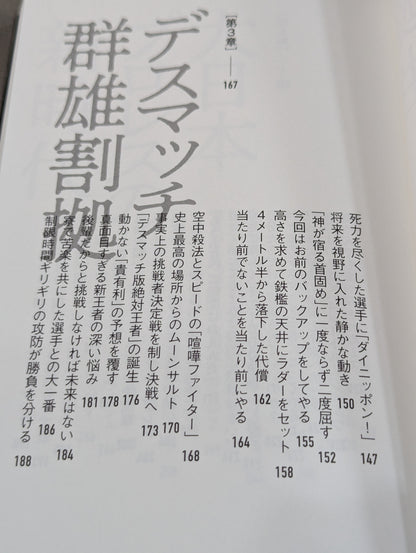 死力を尽くした選手に「ダイニッポン！」 147
将来を視野に入れた静かな動き 150
「神が宿る首固め」に一度ならず二度屈す 152
今回はお前のバックアップをしてやる 155
高さを求めて鉄檻の天井にラダーをセット 158
4メートル半から落下した代償 162
当たり前でないことを当たり前にやる 164
［第3章］── 167
デスマッチ
群雄割拠
空中殺法とスピードの「喧嘩ファイター」 168
史上最高の場所からのムーンサルト 170
事実上の挑戦者決定戦を制し決戦へ 173
「デスマッチ版絶対王者」の誕生 176
動かない「貴有利」の予想を覆す 178
真面目すぎる新王者の深い悩み 181
後輩だからと挑戦しなければ未来はない 184
寮で苦楽を共にした選手との大一番 186
制限時間ギリギリの攻防が勝負を分ける 188